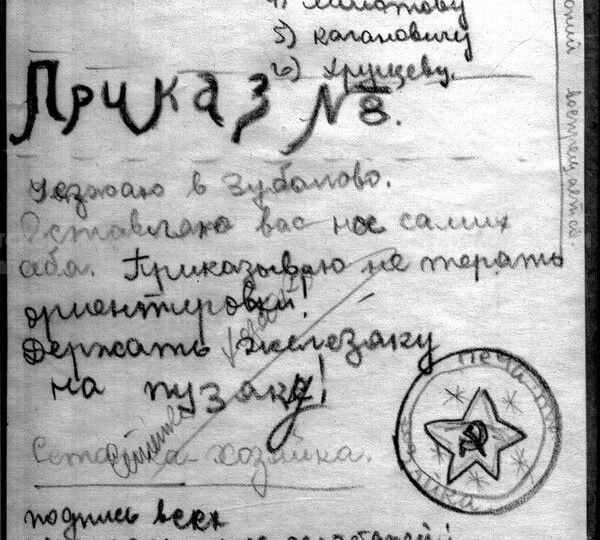 4) Молотову
5) Кагановичу
6) Хрущеву.
Приказ № 8.
Уезжаю в Зубалово.
Оставляю вас на самих
себя. Приказываю не терать
ориентировки!
Держать железяку
на пузаку!
Сетанка-хозяйка.
Печать
подпись всех
воспрещается.